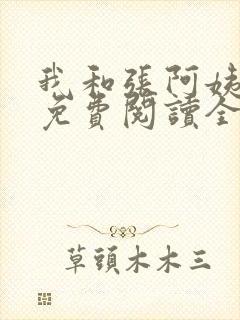 我和張阿姨
免費閱讀全
草頭木木三